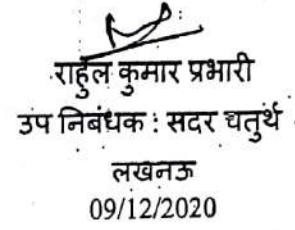 राहुल कुमार प्रभारी
उप निबंधक : सदर चतुर्थ
लखनऊ
09/12/2020